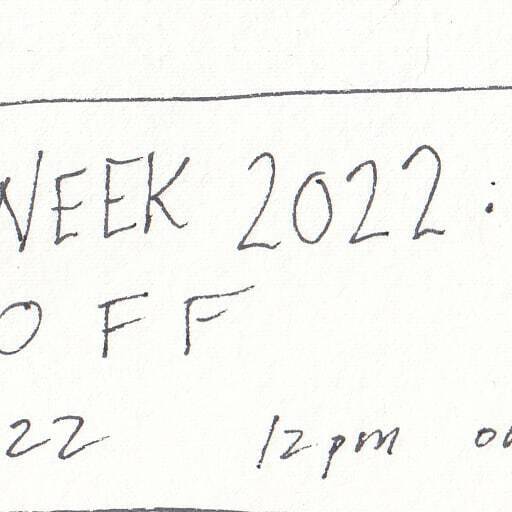 WEEK 2022:
OFF
22 12pm